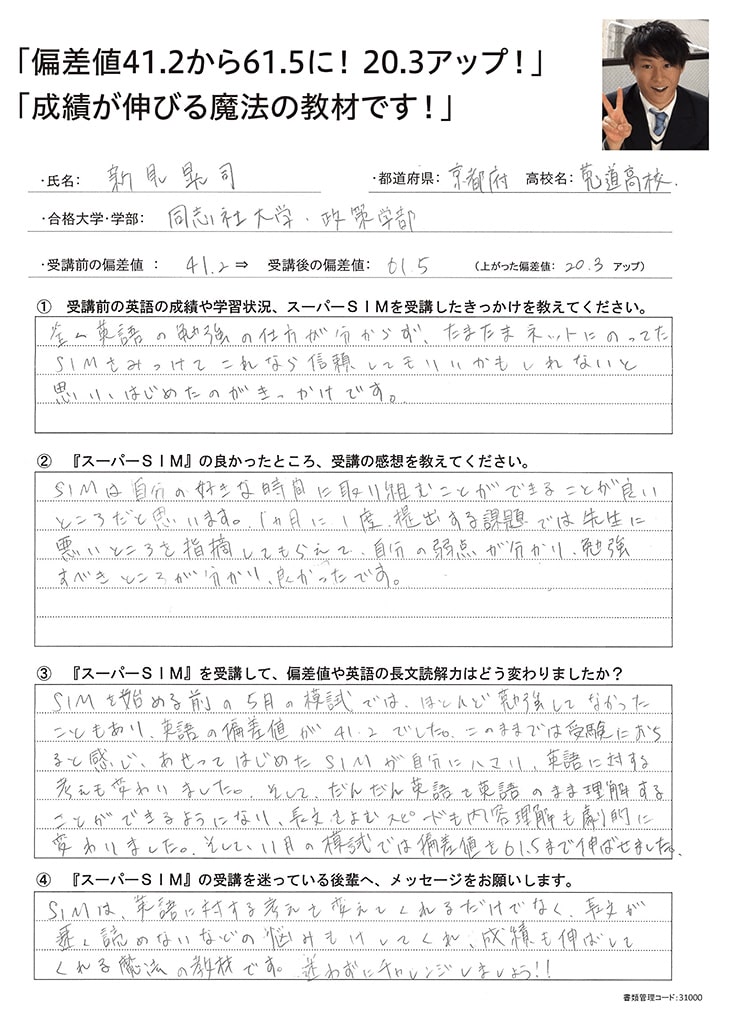 「偏差値41.2から61.5に！ 20.3アップ！」
「成績が伸びる魔法の教材です！」
・氏名： 新見晃司
・都道府県： 京都府 高校名：莵道高校.
・合格大学・学部： 同志社大学・政策学部
・受講前の偏差値 ： 41.2 ⇒ 受講後の偏差値： 61.5 （上がった偏差値： 20.3 アップ）
① 受講前の英語の成績や学習状況、スーパーＳＩＭを受講したきっかけを教えてください。
全く英語の勉強の仕方が分からず、たまたまネットにのってた
SIMをみつけてこれなら信頼してもいいかもしれないと
思い、はじめたのがきっかけです。
② 『スーパーＳＩＭ』の良かったところ、受講の感想を教えてください。
SIMは自分の好きな時間に取り組むことができることが良い
ところだと思います。1ヵ月に1度、提出する課題では先生に
悪いところを指摘してもらえて、自分の弱点が分かり、勉強
すべきところが分かり、良かったです。
③ 『スーパーＳＩＭ』を受講して、偏差値や英語の長文読解力はどう変わりましたか？
SIMを始める前の5月の模試では、ほとんど勉強してなかった
こともあり、英語の偏差値が41.2でした。このままでは受験におち
ると感じ、あせってはじめたSIMが自分にハマり、英語に対する
考えも変わりました。そして、だんだん英語を英語のまま理解する
ことができるようになり、長文をよむスピードも内容理解も劇的に
変わりました。そして、11月の模試では偏差値を61.5まで伸ばせました。
④ 『スーパーＳＩＭ』の受講を迷っている後輩へ、メッセージをお願いします。
SIMは、英語に対する考えを変えてくれるだけでなく、長文が
速く読めないなどの悩みもけしてくれ、成績も伸ばして
くれる魔法の教材です。迷わずにチャレンジしましょう!!
書類管理コード：31000